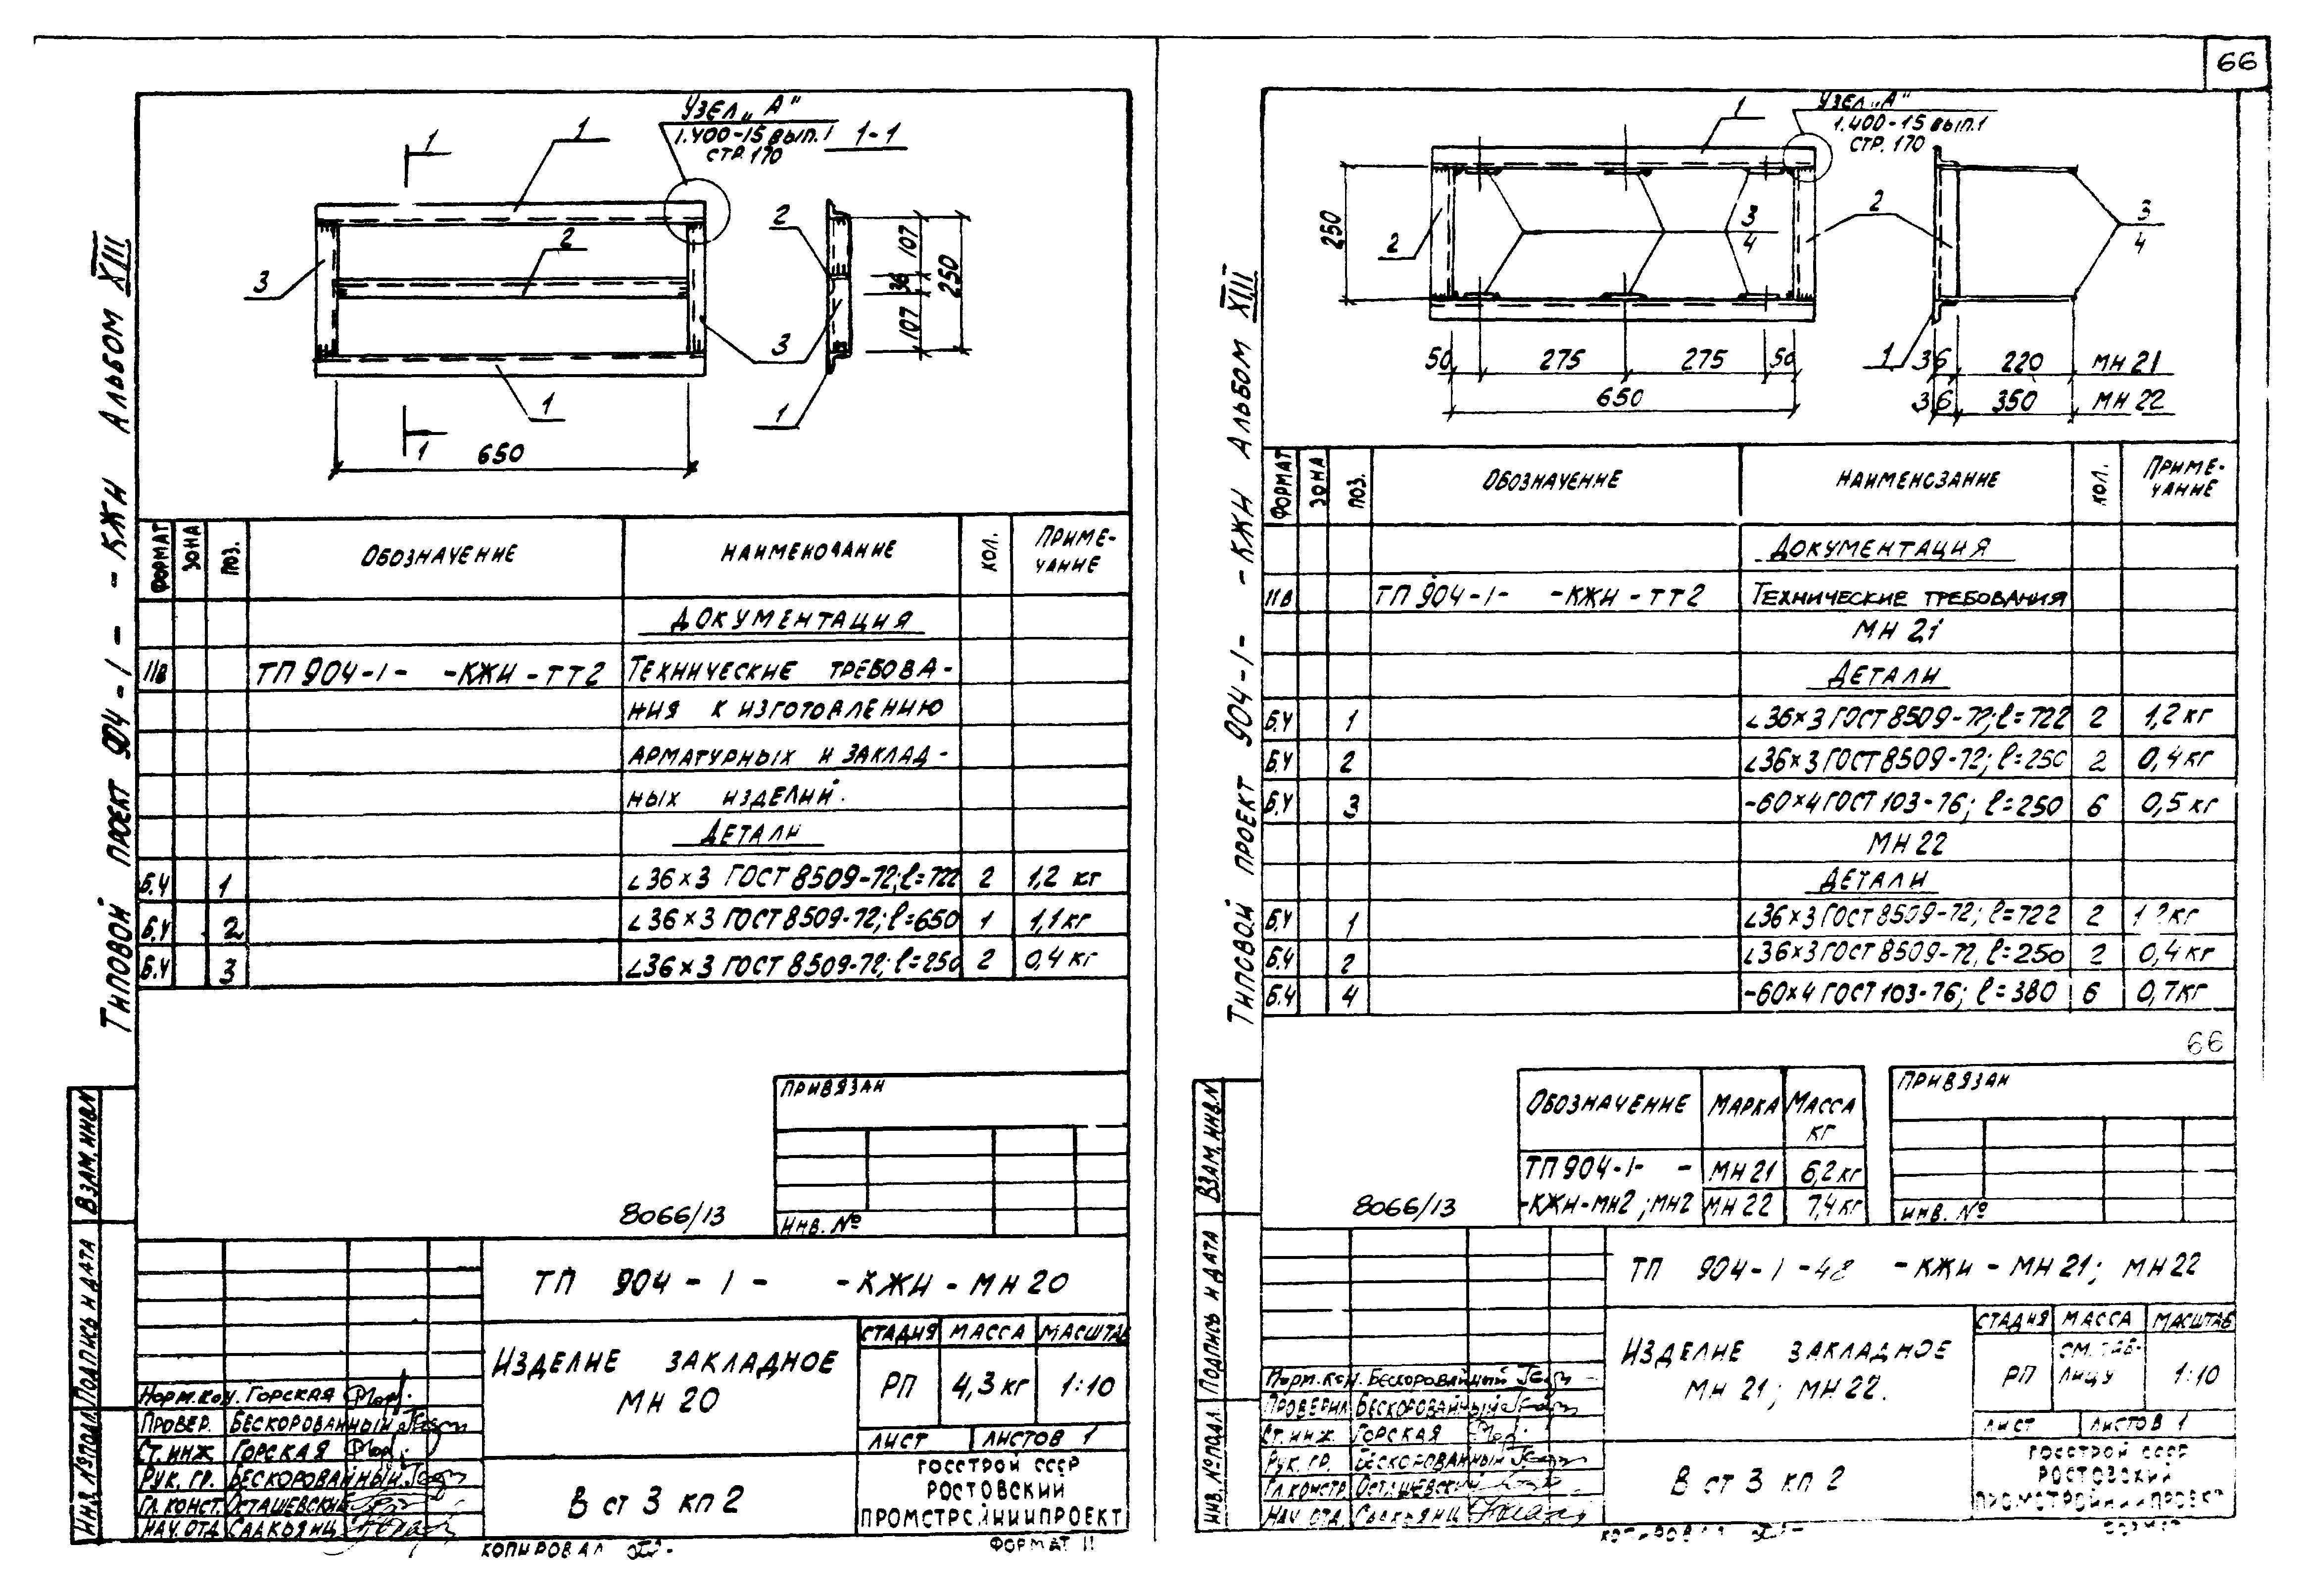 66
ТИПОВОЙ ПРОЕКТ 904-1- -КЖИ АЛЬБОМ XIII
УЗЕЛ „А"
1.400-15 ВЫП.1
СТР. 170
1-1
1
1
2
3
3
1
1
650
2
1
107
36
107
250
ФОРМАТ ЗОНА ПОЗ. ОБОЗНАЧЕНИЕ НАИМЕНОВАНИЕ КОЛ. ПРИМЕ-
ЧАНИЕ
ДОКУМЕНТАЦИЯ
11В ТП 904-1- -КЖИ-ТТ2 ТЕХНИЧЕСКИЕ ТРЕБОВА-
НИЯ К ИЗГОТОВЛЕНИЮ
АРМАТУРНЫХ И ЗАКЛАД-
НЫХ ИЗДЕЛИЙ.
ДЕТАЛИ
Б.Ч 1 ∠36×3 ГОСТ 8509-72; ℓ=722 2 1,2 кг
Б.Ч 2 ∠36×3 ГОСТ 8509-72; ℓ=650 1 1,1 кг
Б.Ч 3 ∠36×3 ГОСТ 8509-72; ℓ=250 2 0,4 кг
ПРИВЯЗАН
ИНВ. №
8066/13
ВЗАМ. ИНВ.N
ПОДПИСЬ И ДАТА
ИНВ. № ПОДЛ.
ТП 904-1- -КЖИ-МН 20
ИЗДЕЛИЕ ЗАКЛАДНОЕ
МН 20
СТАДИЯ МАССА МАСШТАБ
РП 4,3 кг 1:10
ЛИСТ ЛИСТОВ 1
НОРМ.КОН. ГОРСКАЯ
ПРОВЕР. БЕСКОРОВАЙНЫЙ
СТ. ИНЖ ГОРСКАЯ
РУК. ГР. БЕСКОРОВАЙНЫЙ
ГЛ. КОНСТ. ОСТАШЕВСКИЙ
НАЧ. ОТД СААКЬЯНЦ
В ст 3 кп 2
ГОССТРОЙ СССР
РОСТОВСКИЙ
ПРОМСТРОЙНИИПРОЕКТ
КОПИРОВАЛ
ФОРМАТ 11
ТИПОВОЙ ПРОЕКТ 904-1- -КЖИ АЛЬБОМ XIII
УЗЕЛ „А"
1.400-15 ВЫП.1
СТР. 170
1
2
2
3
4
3
4
1
250
50 275 275 50
650
36 220 МН 21
36 350 МН 22
ФОРМАТ ЗОНА ПОЗ. ОБОЗНАЧЕНИЕ НАИМЕНОВАНИЕ КОЛ. ПРИМЕ-
ЧАНИЕ
ДОКУМЕНТАЦИЯ
11В ТП 904-1- -КЖИ-ТТ2 ТЕХНИЧЕСКИЕ ТРЕБОВАНИЯ
МН 21
ДЕТАЛИ
Б.Ч 1 ∠36×3 ГОСТ 8509-72; ℓ=722 2 1,2 кг
Б.Ч 2 ∠36×3 ГОСТ 8509-72; ℓ=250 2 0,4 кг
Б.Ч 3 -60×4 ГОСТ 103-76; ℓ=250 6 0,5 кг
МН 22
ДЕТАЛИ
Б.Ч 1 ∠36×3 ГОСТ 8509-72; ℓ=722 2 1,2 кг
Б.Ч 2 ∠36×3 ГОСТ 8509-72, ℓ=250 2 0,4 кг
Б.Ч 4 -60×4 ГОСТ 103-76; ℓ=380 6 0,7 кг
66
ОБОЗНАЧЕНИЕ МАРКА МАССА
КГ
ТП 904-1- - МН 21 6,2 кг
-КЖИ-МН2 ; МН2 МН 22 7,4 кг
ПРИВЯЗАН
ИНВ. №
8066/13
ВЗАМ. ИНВ.N
ПОДПИСЬ И ДАТА
ИНВ. № ПОДЛ.
ТП 904-1-48 -КЖИ-МН 21; МН 22
ИЗДЕЛИЕ ЗАКЛАДНОЕ
МН 21; МН 22.
СТАДИЯ МАССА МАСШТАБ
РП СМ. ТАБ-
ЛИЦУ 1:10
ЛИСТ ЛИСТОВ 1
НОРМ.КОН. БЕСКОРОВАЙНЫЙ
ПРОВЕРИЛ БЕСКОРОВАЙНЫЙ
СТ. ИНЖ. ГОРСКАЯ
РУК. ГР. БЕСКОРОВАЙНЫЙ
ГЛ. КОНСТР. ОСТАШЕВСКИЙ
НАЧ. ОТД. СААКЬЯНЦ
В ст 3 кп 2
ГОССТРОЙ СССР
РОСТОВСКИЙ
ПРОМСТРОЙНИИПРОЕКТ
КОПИРОВАЛ
ФОРМАТ